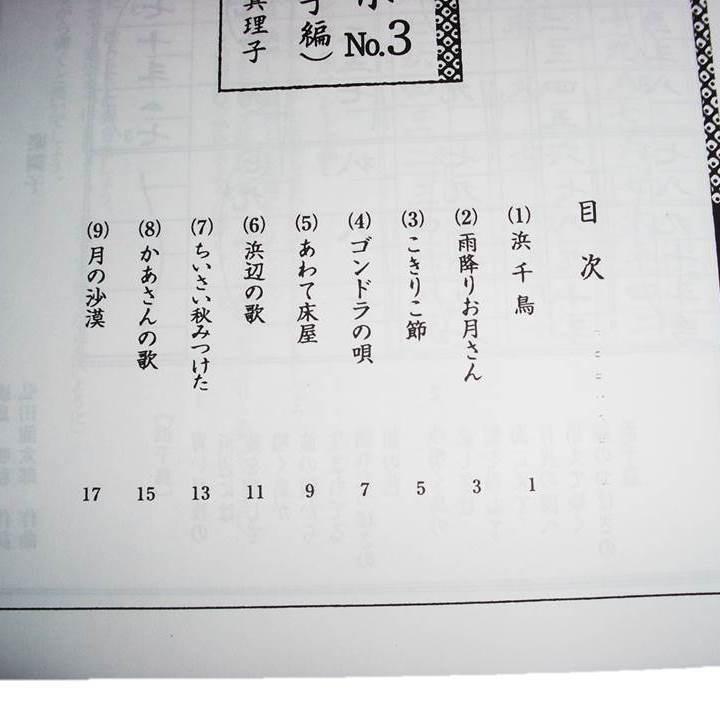 No.3
編）
真理子
目次
(1) 浜千鳥 1
(2) 雨降りお月さん 3
(3) こきりこ節 5
(4) ゴンドラの唄 7
(5) あわて床屋 9
(6) 浜辺の歌 11
(7) ちいさい秋みつけた 13
(8) かあさんの歌 15
(9) 月の沙漠 17